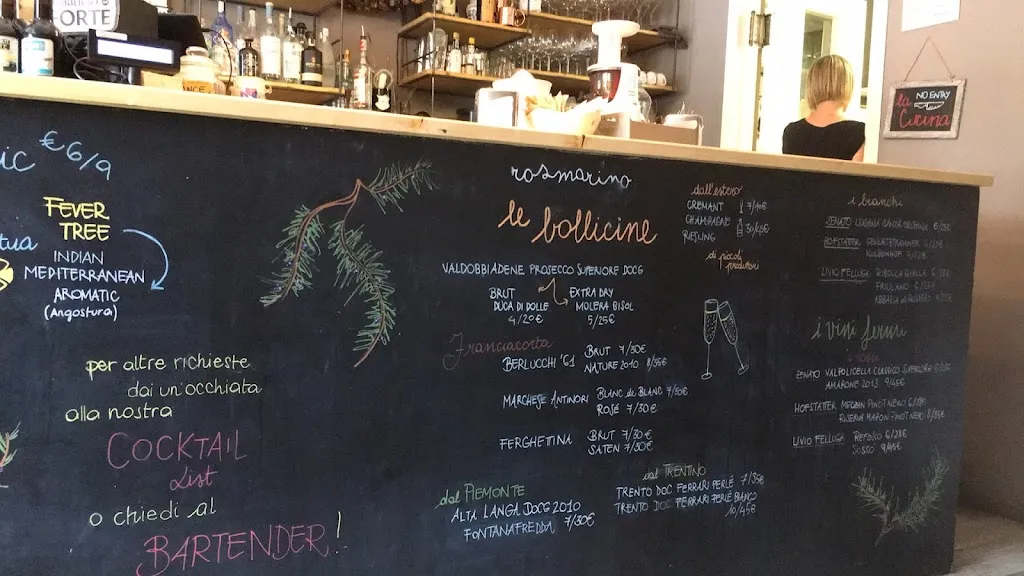 ORTE
NO ENTRY
la
Cucina
ic €6/9
FEVER
TREE
tua
INDIAN
MEDITERRANEAN
AROMATIC
(Angostura)
per altre richieste
dai un'occhiata
alla nostra
COCKTAIL
List
o chiedi al
BARTENDER!
rosmarino
le bollicine
VALDOBBIADENE PROSECCO SUPERIORE DOCG
BRUT
DUCA DI DOLLE
4/20€
EXTRA DRY
MOLERA BISOL
5/25€
Franciacorta
BERLUCCHI '61 BRUT 7/30€
NATURE 2010 8/35€
MARCHESE ANTINORI BLANC de BLANC 7/30€
ROSÉ 7/30€
FERGHETTINA BRUT 7/30€
SATEN 7/30€
dal PIEMONTE
ALTA LANGA DOCG 2010
FONTANAFREDDA 7/30€
dal TRENTINO
TRENTO DOC FERRARI PERLÉ 7/35€
TRENTO DOC FERRARI PERLÉ BIANCO
10/45€
dall'estero
CREMANT 7/40€
CHAMPAGNE
RIESLING
di piccoli
produttori
i bianchi
ZENATO LUGANA
HOFSTATTER
LIVIO FELLUGA RIBOLLA GIALLA
FRIULANO
i vini fermi
i rossi
ZENATO VALPOLICELLA CLASSICO SUPERIORE
AMARONE 2013 9/45€
HOFSTATTER MECZAN PINOT NERO 6/28€
RISERVA MAZON PINOT NERO
LIVIO FELLUGA REFOSCO 6/28€
SOSSO 9/45€